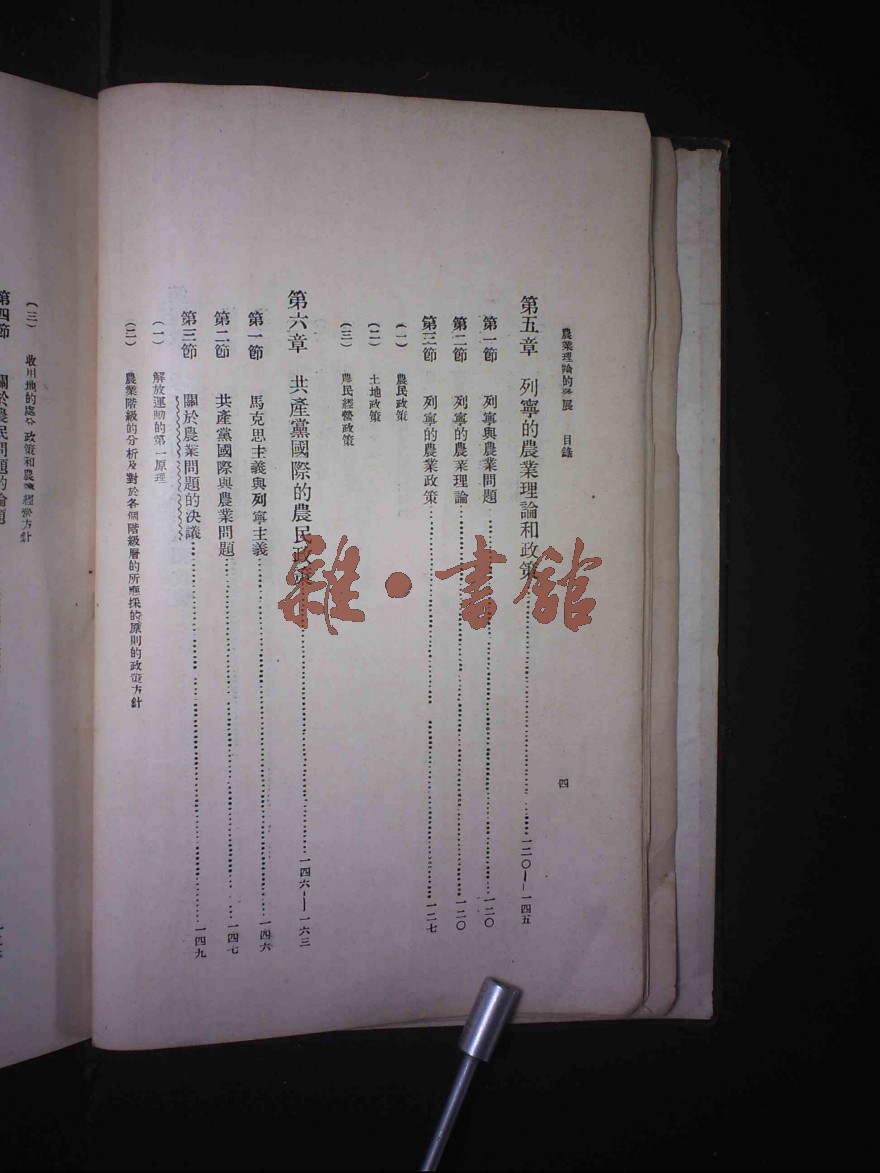 農業理論的發展 目錄 四
第五章 列寧的農業理論和政策 一二〇——一四五
第一節 列寧與農業問題 一二〇
第二節 列寧的農業理論 一二〇
第三節 列寧的農業政策 一二七
(一) 農民政策
(二) 土地政策
(三) 農民經營政策
第六章 共產黨國際的農民政策 一四六——一六三
第一節 馬克思主義與列寧主義 一四六
第二節 共產黨國際與農業問題 一四七
第三節 關於農業問題的決議 一四九
(一) 解放運動的第一原理
(二) 農業階級的分析及對於各個階級層的所應採的原則的政策方針
(三) 收用地的處分政策和農業經營方針
第四節 關於農民問題的論題
雜·書館